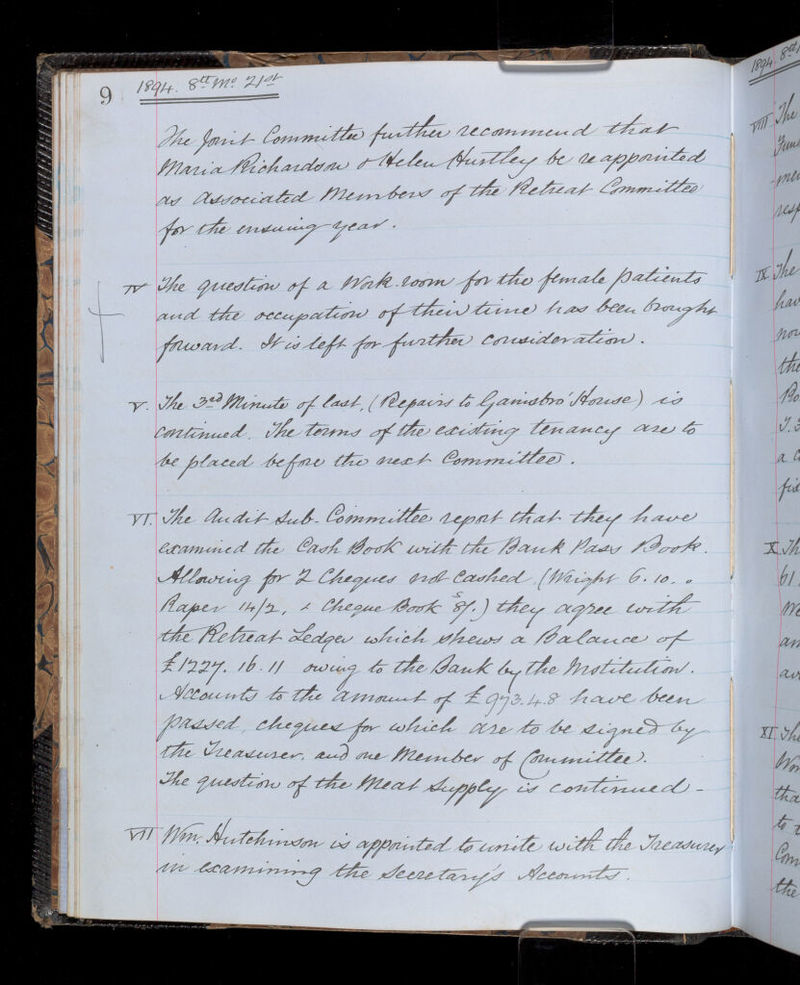 9 1894. 8th Mo 21st
The Joint Committee further recommend that
Maria Richardson & Helen Huntley be reappointed
as associated Members of the Retreat Committee
for the ensuing year.
IV The question of a Work-room for the female patients
and the occupation of their time has been brought
forward. It is left for further consideration.
V. The 3rd Minute of last, (Repairs to Gainsbro' House) is
continued. The terms of the existing tenancy are to
be placed before the next Committee.
VI. The Audit Sub-Committee report that they have
examined the Cash Book with the Bank Pass Book.
Allowing for 2 Cheques not cashed (Wright 6.10.0
Raper 14/2, & Cheque Book 8/.) they agree with
the Retreat Ledger which shews a Balance of
£1227.16.11 owing to the Bank by the Institution.
Accounts to the amount of £973.4.8 have been
passed, cheques for which are to be signed by
the Treasurer, and one Member of Committee.
The question of the Meat Supply is continued -
VII Wm. Hutchinson is appointed to unite with the Treasurer
in examining the Secretary's Accounts.
1894. 8th
VIII The
IX The
hav
the
a c
X Th
61
XI The
tha
to t
Com
the